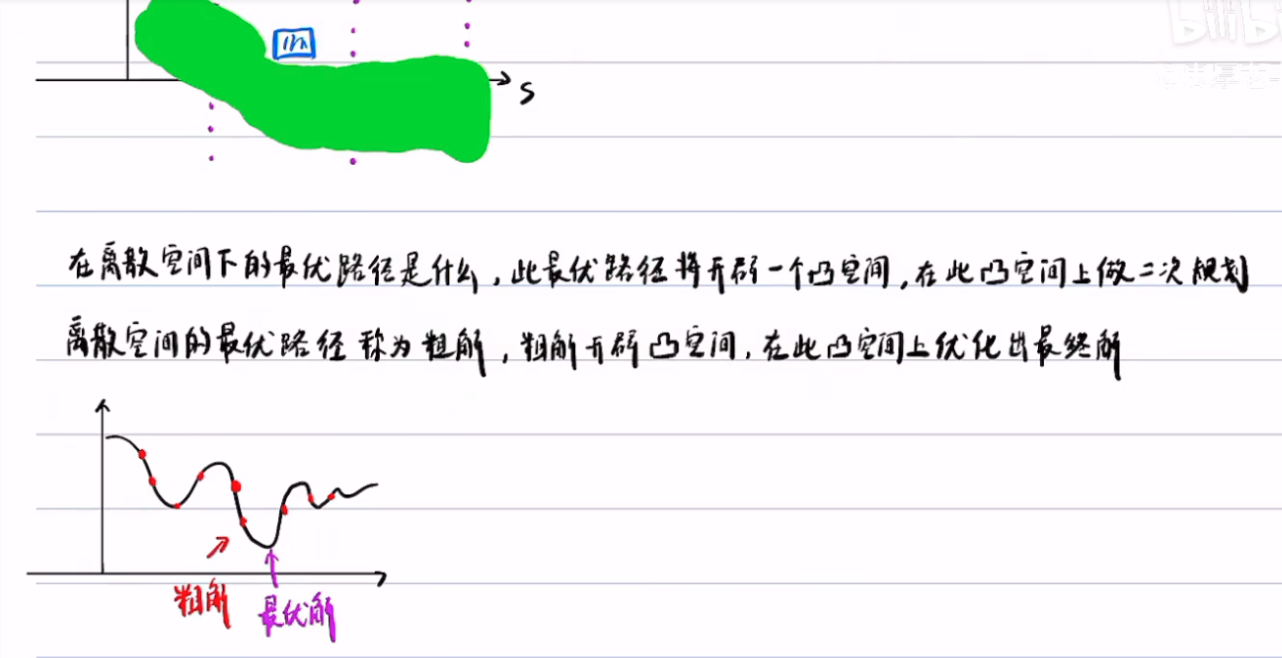 bilibili
S
在离散空间下的最优路径是什么，此最优路径将开辟一个凸空间，在此凸空间上做二次规划
离散空间的最优路径称为粗解，粗解开辟凸空间，在此凸空间上优化出最终解
粗解
最优解